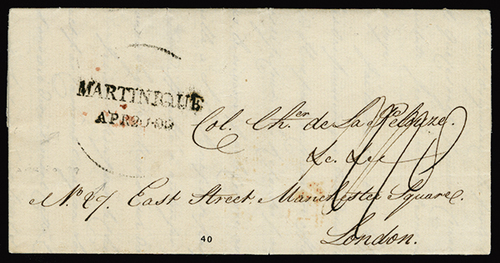 MARTINIQUE
APR 20.09
Col. Ch.er de La
&c. &c.
No. 27. East Street Manchester Square.
London.
40